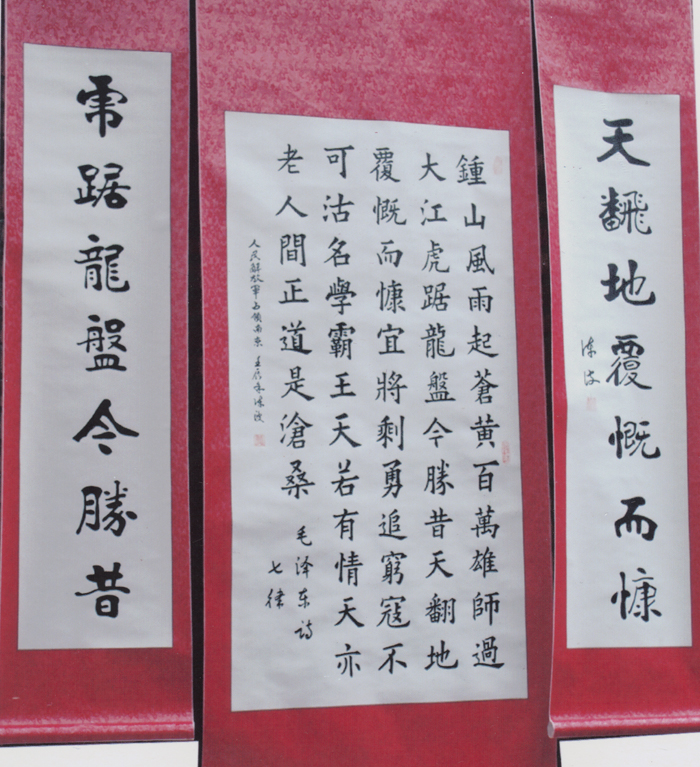 天飜地覆慨而慷
鍾山風雨起蒼黃百萬雄師過
大江虎踞龍盤今勝昔天翻地
覆慨而慷宜將剩勇追窮寇不
可沽名學霸王天若有情天亦
老人間正道是滄桑
毛泽东诗
七律
人民解放軍占领南京
虎踞龍盤今勝昔